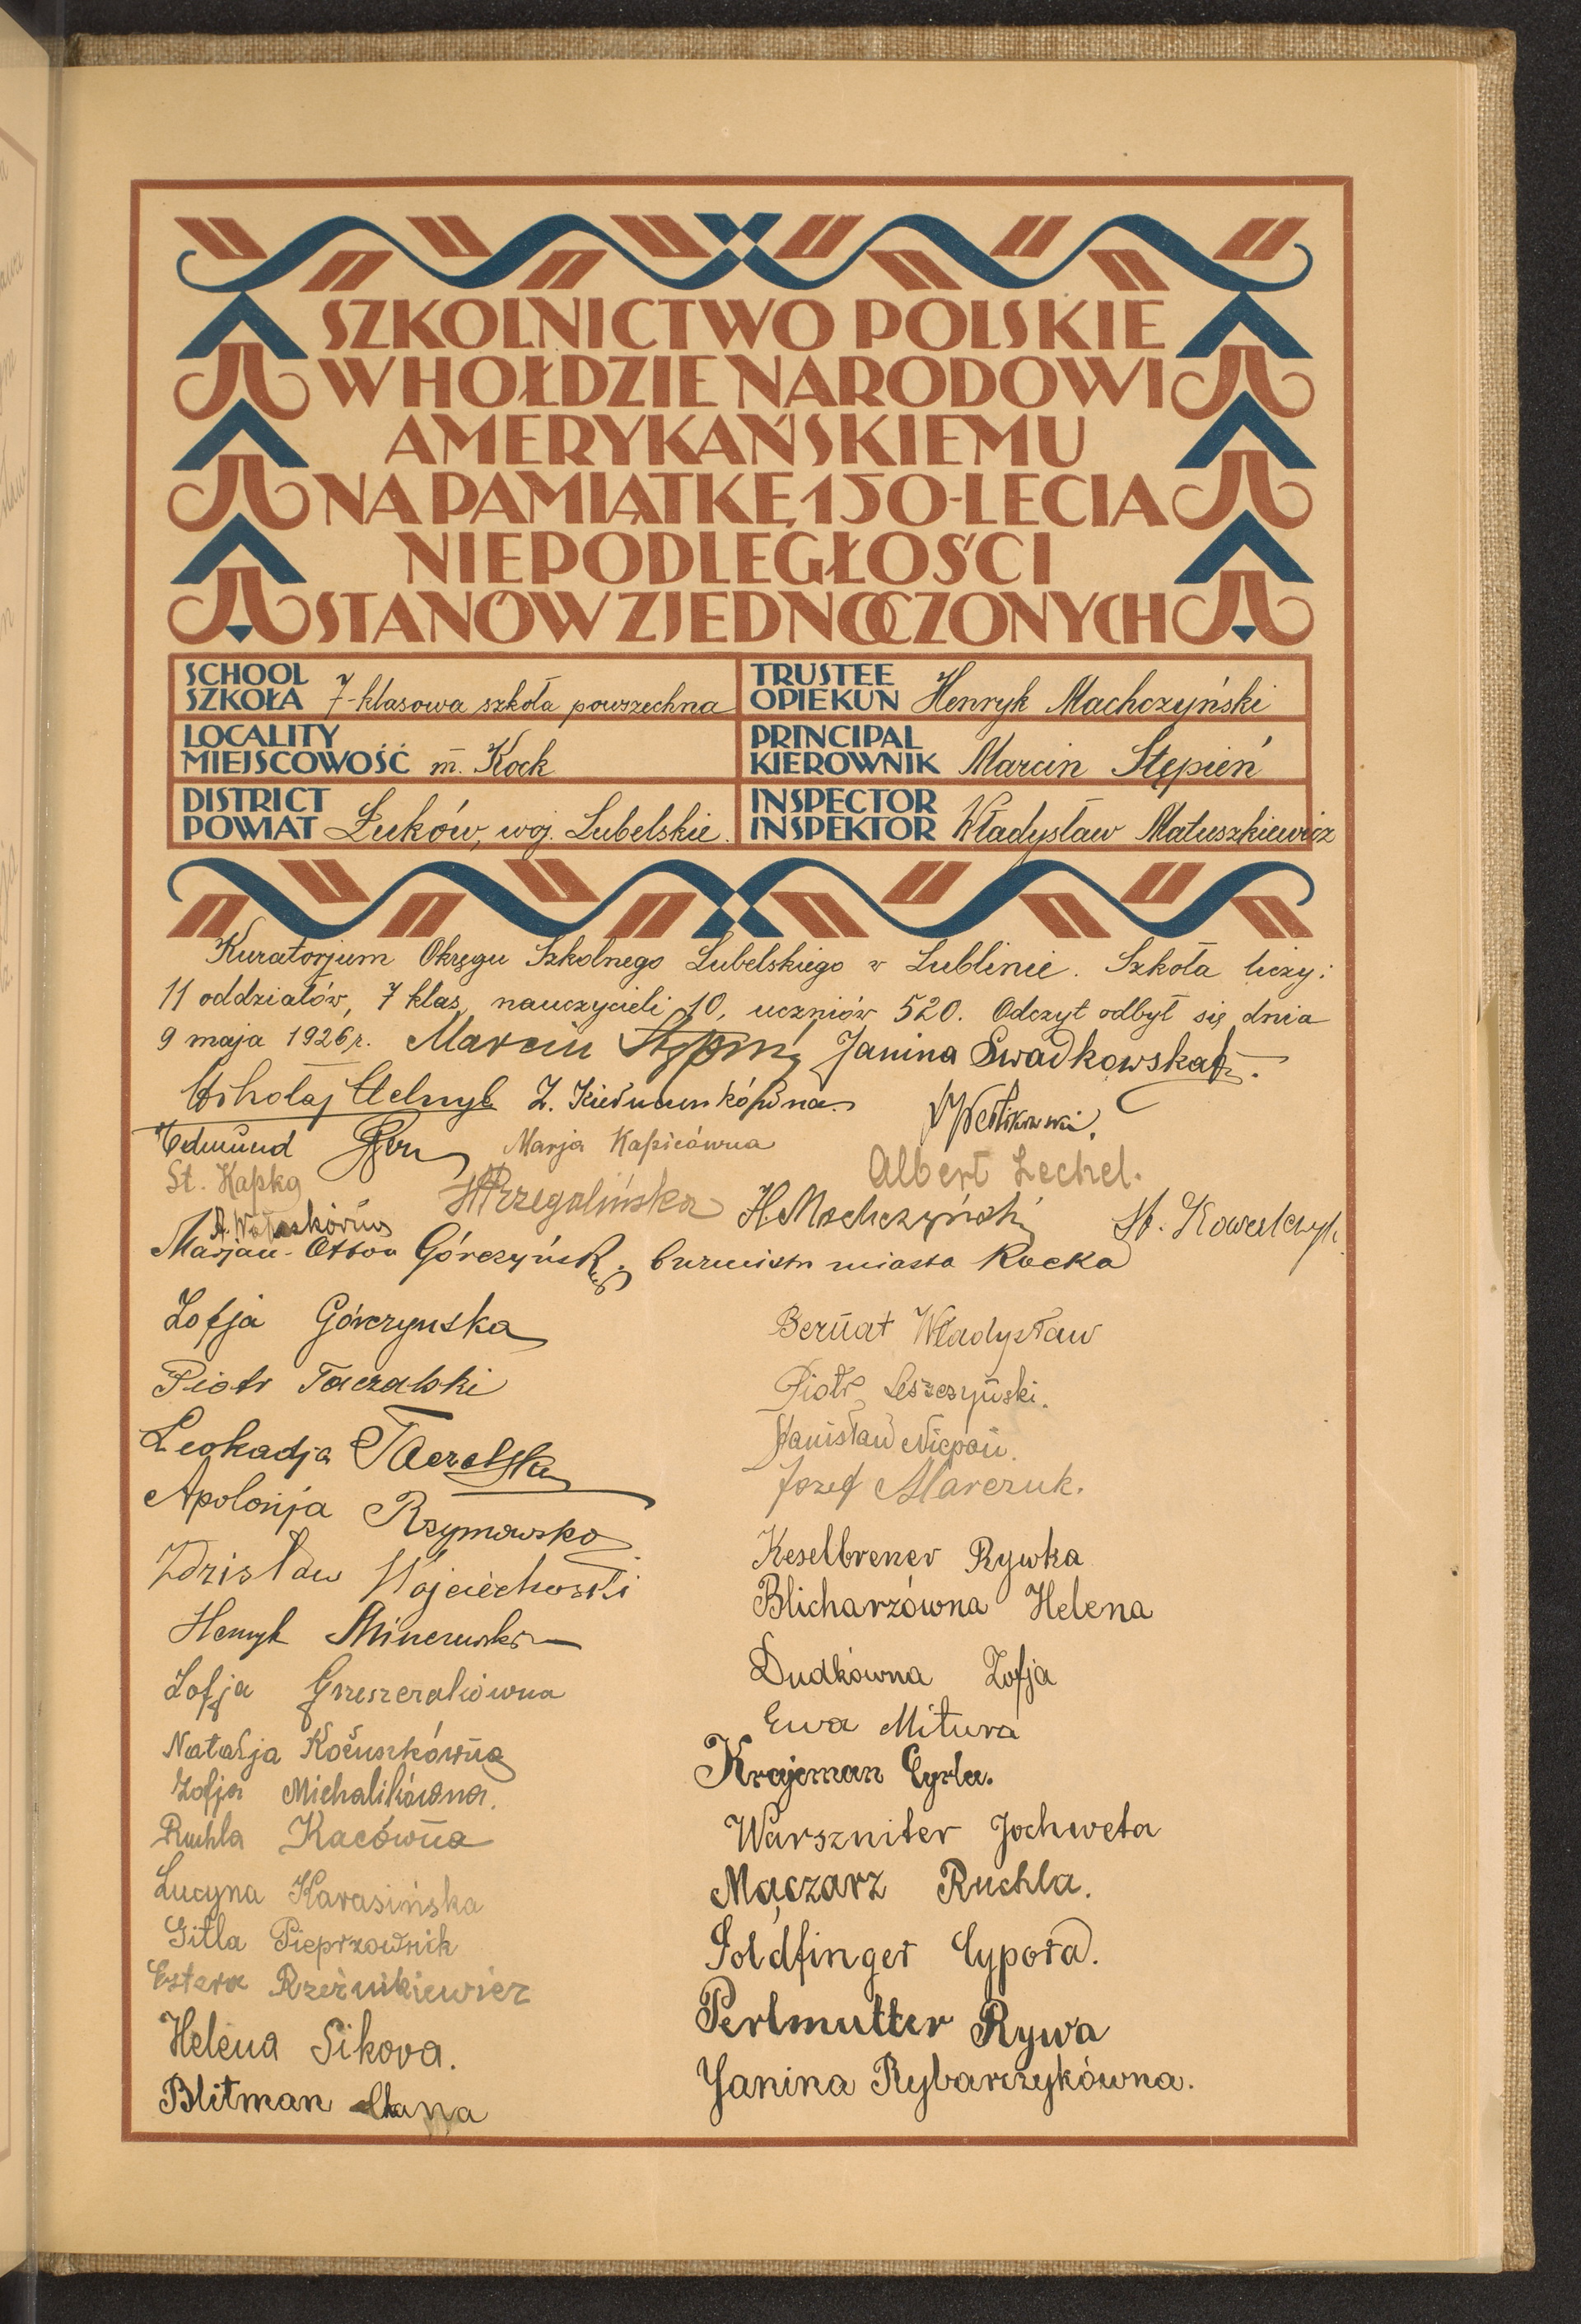 SZKOLNICTWO POLSKIE
W HOŁDZIE NARODOWI
AMERYKAŃSKIEMU
NA PAMIĄTKĘ 150-LECIA
NIEPODLEGŁOŚCI
STANÓW ZJEDNOCZONYCH
SCHOOL
SZKOŁA 7-klasowa szkoła powszechna
TRUSTEE
OPIEKUN Henryk Machczyński
LOCALITY
MIEJSCOWOŚĆ m. Kock
PRINCIPAL
KIEROWNIK Marcin Stępień
DISTRICT
POWIAT Łuków, woj. Lubelskie.
INSPECTOR
INSPEKTOR Władysław Matuszkiewicz
Kuratorjum Okręgu Szkolnego Lubelskiego w Lublinie. Szkoła liczy:
11 oddziałów, 7 klas, nauczycieli 10, uczniów 520. Odczyt odbył się dnia
9 maja 1926 r. Marcin Stępień Janina
Edmund
Marja Kapicówna
St. Kapka
Albert Lechel.
H. Machczyński St. Kowalczyk
Marjan-Otton Górczyński, burmistrz miasta Kocka
Zofja Górczynska
Piotr Taczalski
Leokadja
Apolonja Rzymowska
Zdzisław Wojciechowski
Henryk
Zofja Grzeszczakówna
Natalja Kożuszkówna
Zofja Michalikówna.
Ruchla Kacówna
Lucyna Karasińska
Gitla Pieprzownik
Estera Rzeźnikiewicz
Helena Sikora.
Blitman Chana
Bernat Władysław
Piotr Leszczyński.
Stanisław Niepoń.
Jozef Marczuk.
Keselbrener Rywka
Blicharzówna Helena
Dudkówna Zofja
Ewa Mitura
Krajcman Cyrla.
Warszniter Jochweta
Mączarz Ruchla.
Goldfinger Cypora.
Perlmutter Rywa
Janina Rybarczykówna.